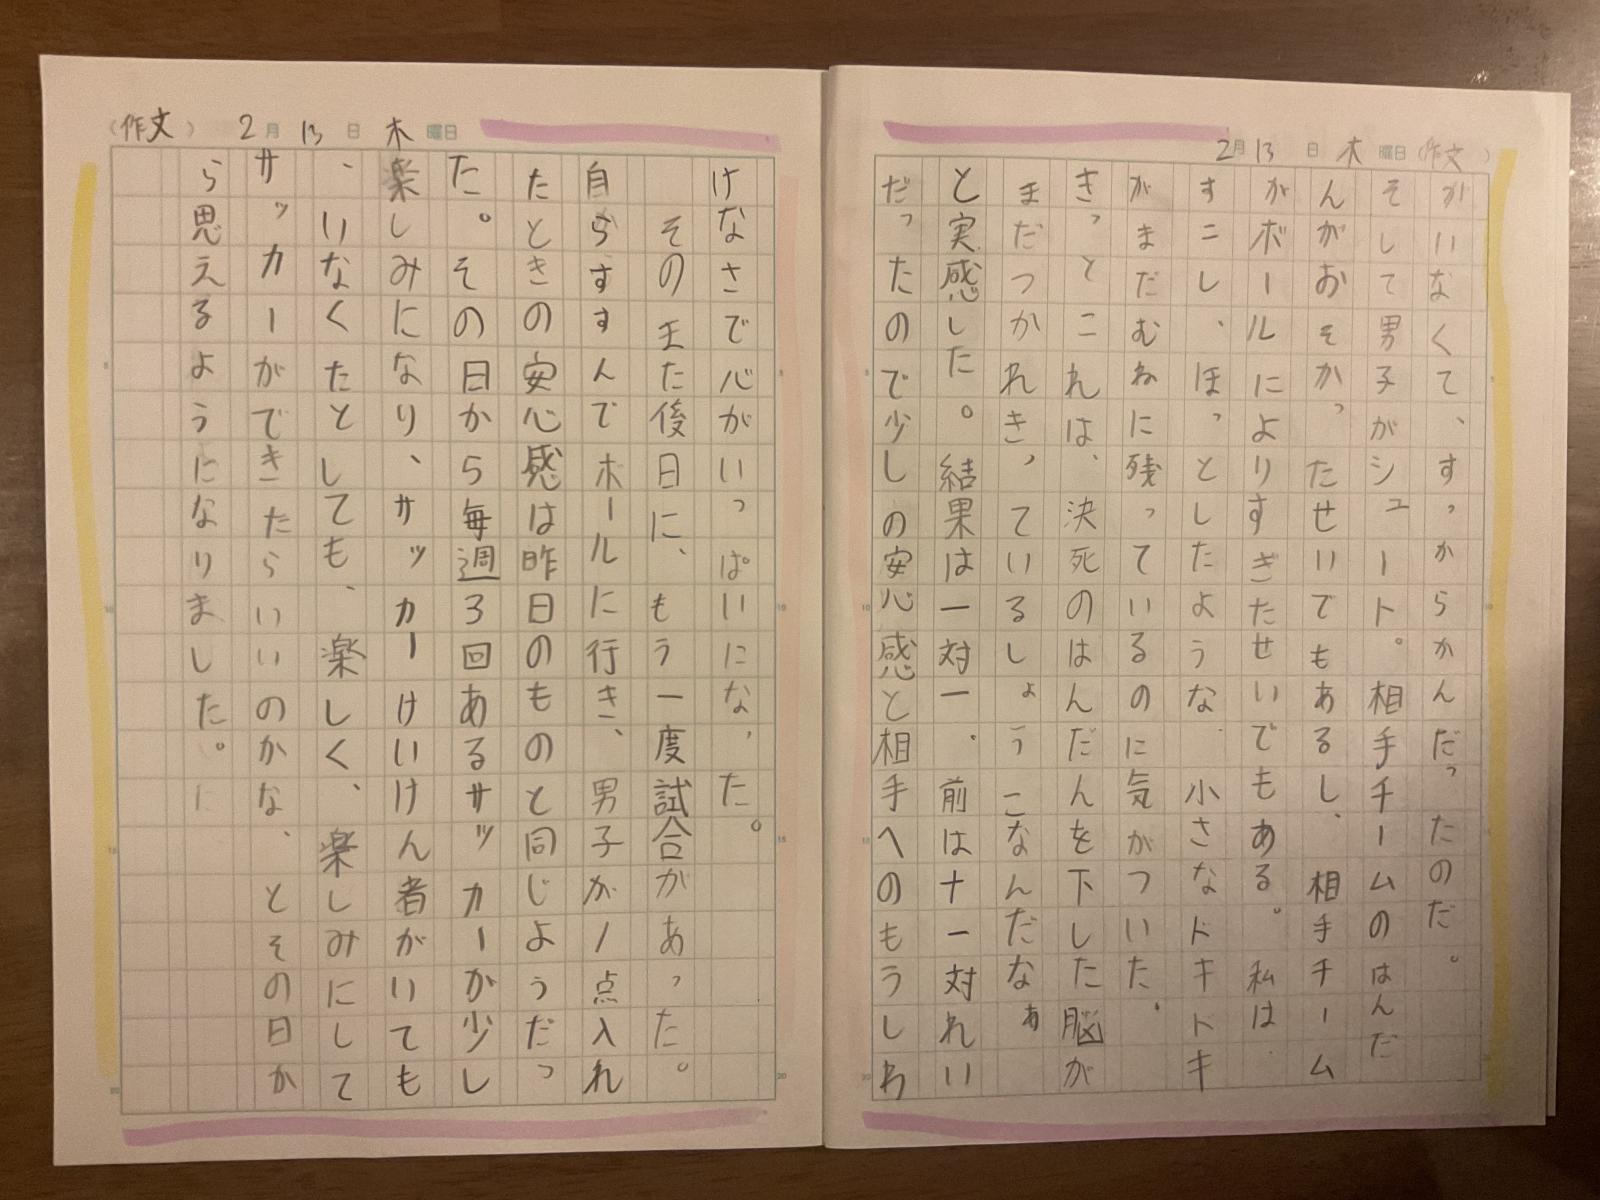 2月13日木曜日(作文)
がいなくて、すっからかんだったのだ。
そして男子がシュート。相手チームのはんだ
んがおそかったせいでもあるし、相手チーム
がボールによりすぎたせいでもある。私は
すこし、ほっとしたような、小さなドキドキ
がまだむねに残っているのに気がついた。
きっとこれは、決死のはんだんを下した脳が
まだつかれきっているしょうこなんだなぁ
と実感した。結果は一対一。前は十一対れい
だったので少しの安心感と相手へのもうしわ
(作文) 2月13日木曜日
けなさで心がいっぱいになった。
そのまた後日に、もう一度試合があった。
自らすすんでボールに行き、男子が1点入れ
たときの安心感は昨日のものと同じようだっ
た。その日から毎週3回あるサッカーが少し
楽しみになり、サッカーけいけん者がいても
、いなくたとしても、楽しく、楽しみにして
サッカーができたらいいのかな、とその日か
ら思えるようになりました。